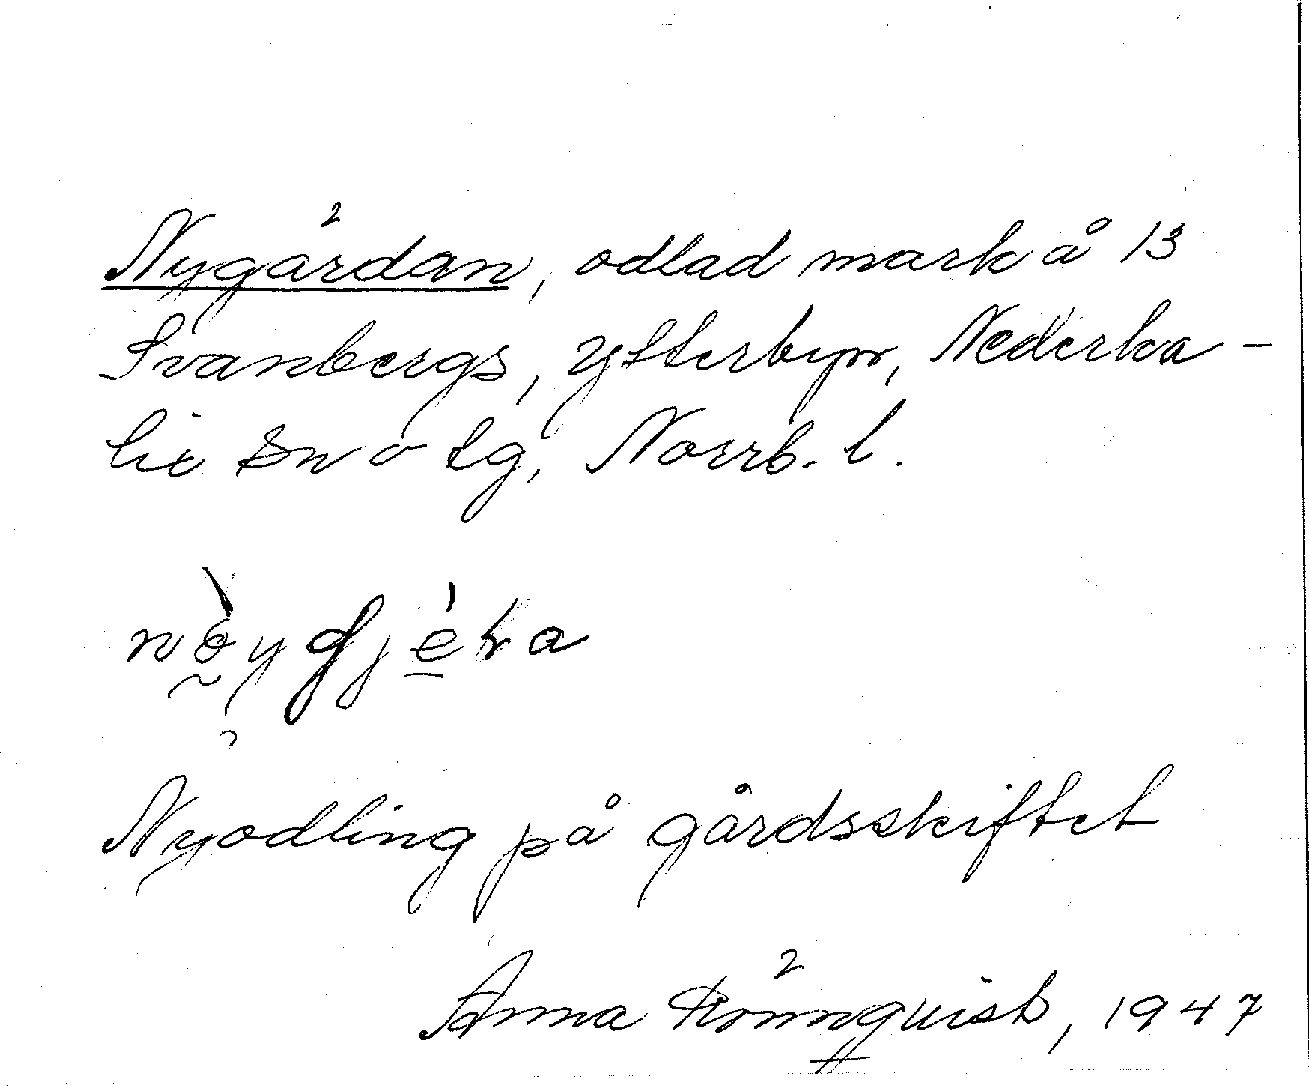 Nygårdan, odlad mark å 13
Svanbergs, Ytterbyn, Nederka-
lix sn o tg, Norrb. l.
Nyodling på gårdsskiftet
Anna Rönnquist, 1947